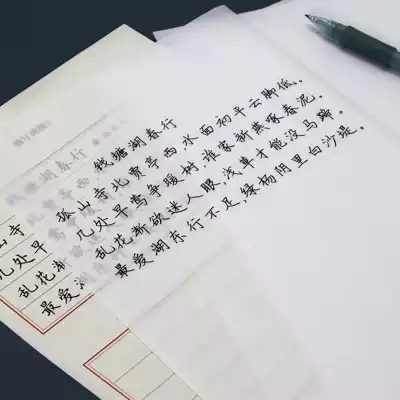 钱塘湖春行
孤山寺北贾亭西水面初平云脚低。
几处早莺争暖树,谁家新燕啄春泥。
乱花渐欲迷人眼,浅草才能没马蹄。
最爱湖东行不足,绿杨阴里白沙堤。
钱塘湖春行
山寺北贾亭西
几处早莺
乱花渐
最爱湖